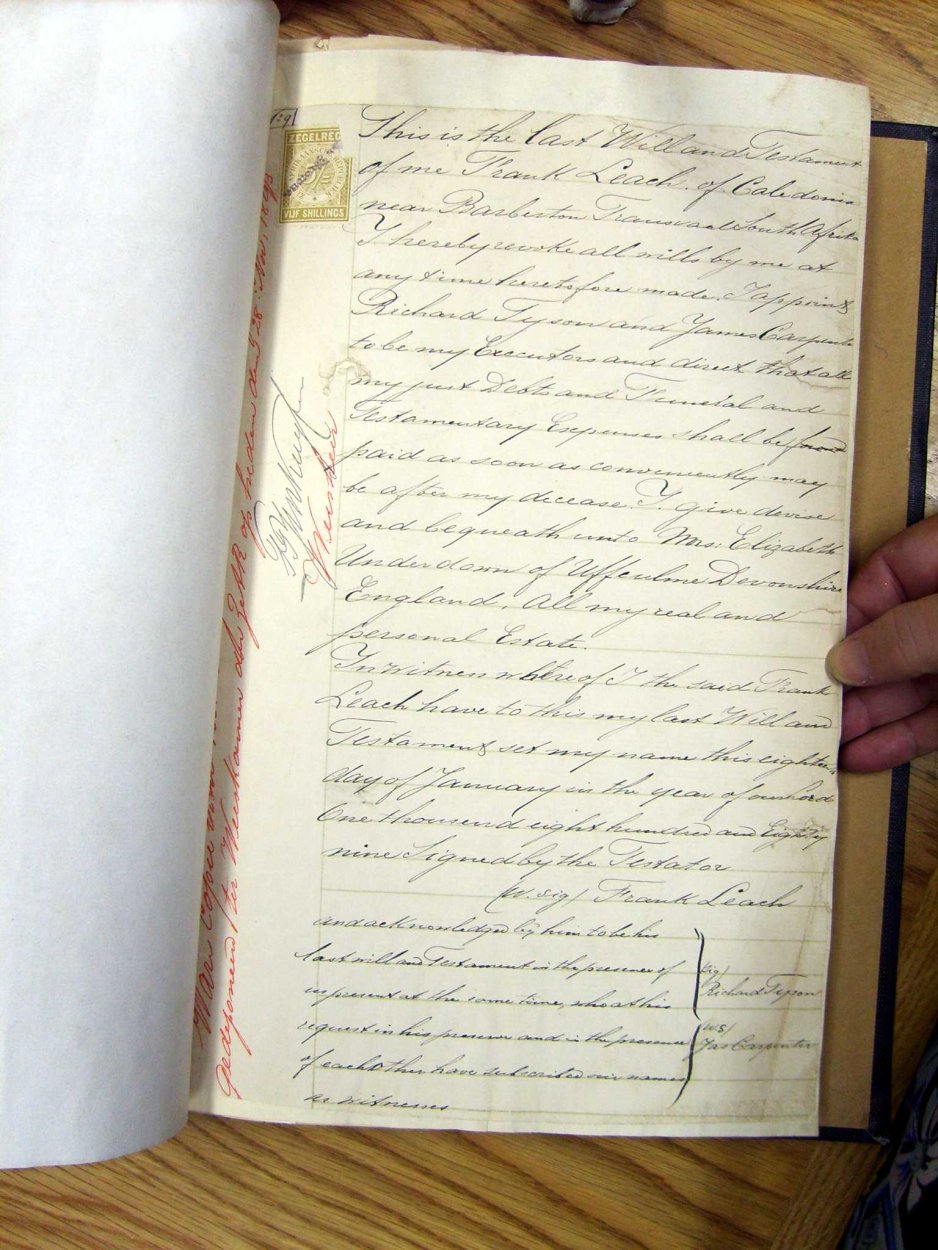 129
ZEGELREG
VIJF SHILLINGS
This is the last Will and Testament
of me Frank Leach of Caledonia
near Barberton Transvaal South Afrika
I hereby revoke all wills by me at
any time heretofore made, I appoint
Richard Tyson and James Carpente
to be my Executors and direct that all
my just Debts and Funeral and
Testamentary Expenses shall be
paid as soon as conveniently may
be after my decease. I give devise
and bequeath unto Mrs: Elizabeth
Underdown of Uffculme Devonshire
England, all my real and
personal Estate.
In witness whereof I the said Frank
Leach have to this my last Will and
Testament set my name this eighteen
day of January in the year of our Lord
One thousend eight hundred and Eighty
nine Signed by the Testator
(w.sig) Frank Leach
and acknowledged by him to be his
last will and Testament in the presence of
us present at the same time, who at his
request in his presence and in the presence
of each other have subscribed our names
as witnesses
sig/
Richard Tyson
w.s/
Jas Carpenter
Weesheer
gedeponeerd ter Weeskamer der Z.A.R. op heden den 28. Nov. 1893